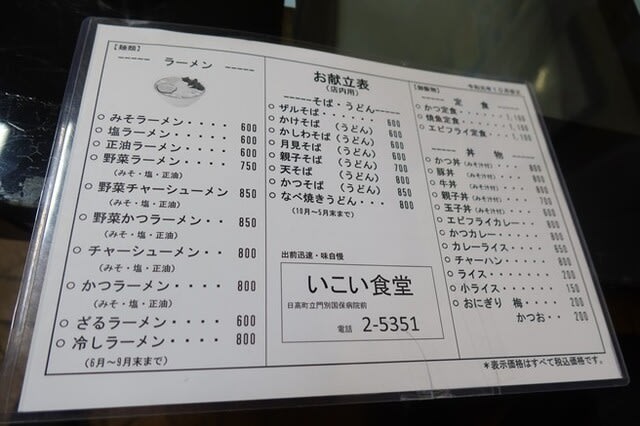 【麺類】
----- ラーメン -----
○ みそラーメン・・・・ 600
○ 塩ラーメン・・・・・ 600
○ 正油ラーメン・・・・ 600
○ 野菜ラーメン・・・・ 750
(みそ・塩・正油)
○ 野菜チャーシューメン 850
(みそ・塩・正油)
○ 野菜かつラーメン・・ 850
(みそ・塩・正油)
○ チャーシューメン・・ 800
(みそ・塩・正油)
○ かつラーメン・・・・ 800
(みそ・塩・正油)
○ ざるラーメン・・・・ 600
○ 冷しラーメン・・・・ 800
(6月〜9月末まで)
お献立表
(店内用)
-----そば・うどん-----
○ ザルそば・・・・・
○ かけそば (うどん) 600
○ かしわそば(うどん)
○ 月見そば (うどん)
○ 親子そば (うどん)
○ 天そば (うどん)
○ かつそば (うどん) 850
○ なべ焼きうどん・・・ 800
(10月〜5月末まで)
出前迅速・味自慢
いこい食堂
日高町立門別国保病院前
電話 2-5351
【御飯物】
令和元年10月改正
----- 定 食 -----
○ かつ定食・・・・・ 1,100
○ 焼魚定食・・・・・ 1,100
○ エビフライ定食・・・ 1,100
----- 丼 物 -----
○ かつ丼(みそ汁付)・・・ 800
○ 豚丼 (みそ汁付)・・・ 800
○ 牛丼 (みそ汁付)・・・
○ 親子丼(みそ汁付)・・・
○ 玉子丼(みそ汁付)・・・
○ エビフライカレー・・ 800
○ かつカレー・・・・・ 800
○ カレーライス・・・・ 650
○ チャーハン・・・・・
○ ライス・・・・・・・ 200
○ 小ライス・・・・・・ 150
○ おにぎり 梅・・・・ 200
かつお・・ 200
*表示価格はすべて税込価格です。